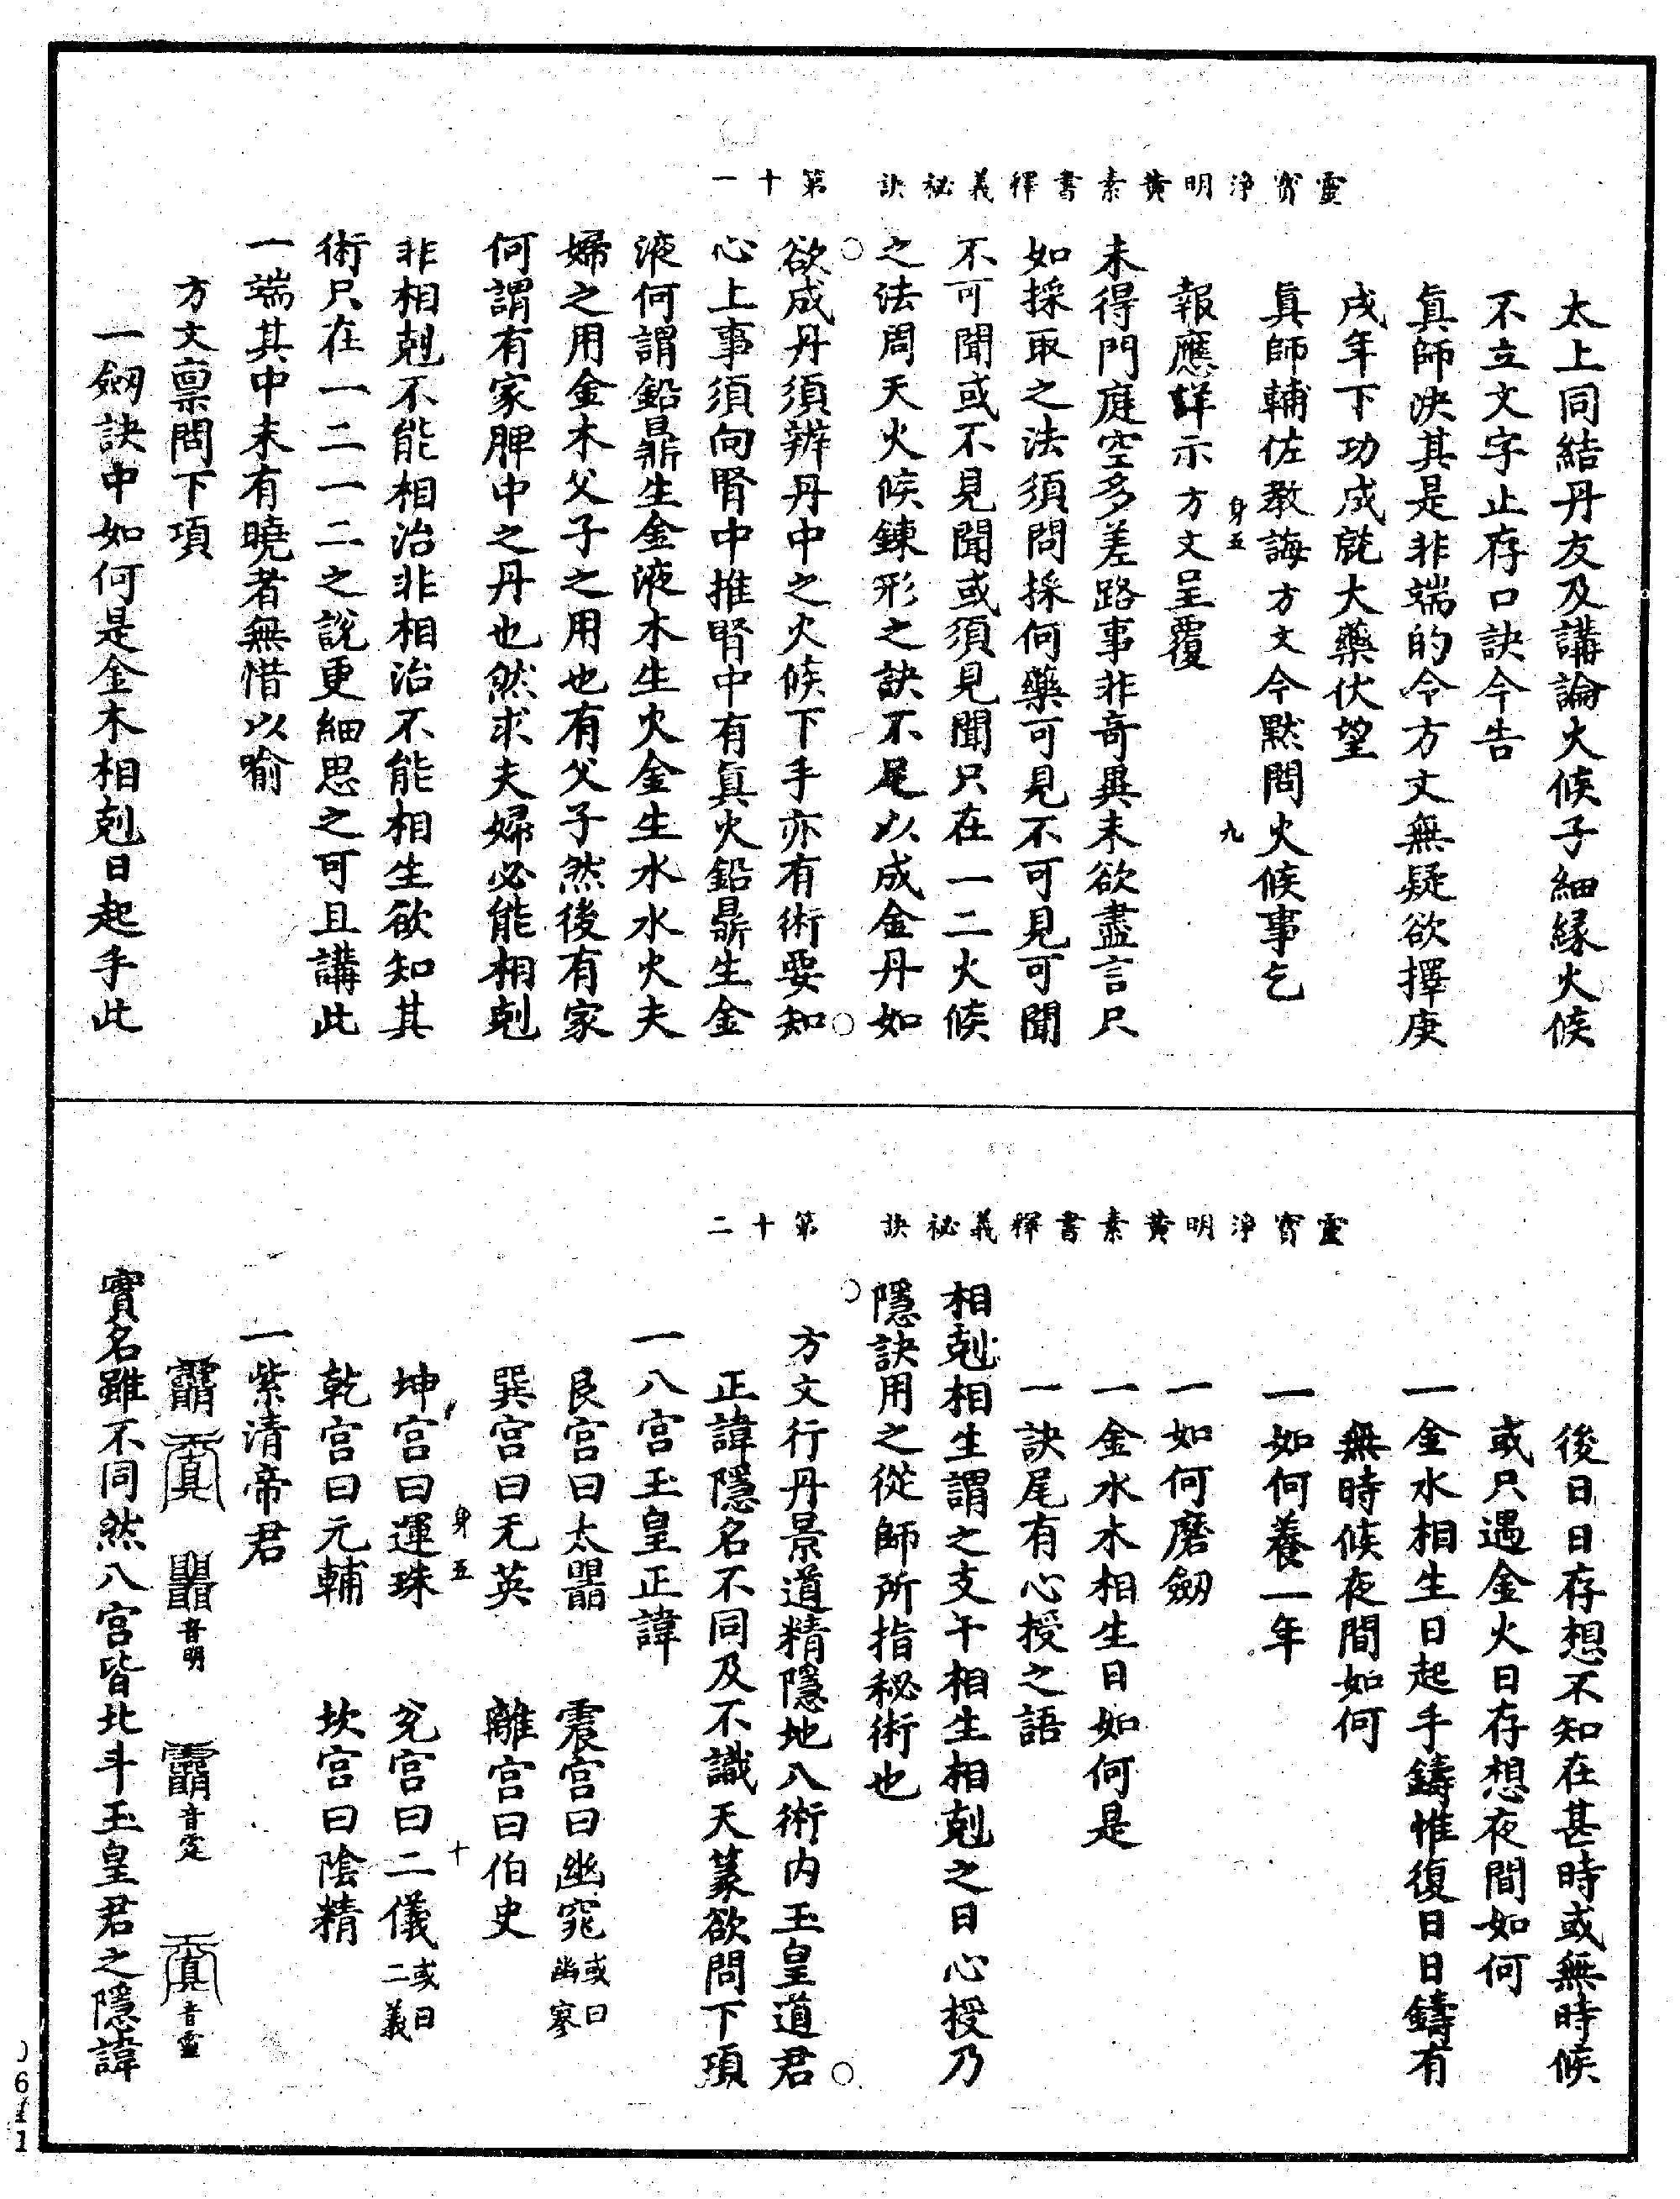 靈寶淨明黃素書釋義祕訣 第十一
太上同結丹友及講論火候子細縁火候
不立文字止存口訣今告
眞師决其是非端的今方文無疑欲擇庚
戌年下功成就大藥伏望
眞師輔佐教誨方文今默問火候事乞
身五 九
報應詳示方文呈覆
未得門庭空多差路事非奇異未欲盡言只
如採取之法須問採何藥可見不可見可聞
不可聞或不見聞或須見聞只在一二火候
之法周天火候鍊形之訣不尾以成金丹如
欲成丹須辨丹中之火候下手亦有術要知
心上事須向腎中推腎中有眞火鉛鼎生金
液何謂鉛鼎生金液木生火金生水水火夫
婦之用金木父子之用也有父子然後有家
何謂有家脾中之丹也然求夫婦必能相剋
非相剋不能相治非相治不能相生欲知其
術只在一二一二之說更細思之可且講此
一端其中未有曉者無惜以喻
方文禀問下項
一劔訣中如何是金木相剋日起手此
靈寶淨明黃素書釋義祕訣 第十二
後日日存想不知在甚時或無時候
或只遇金火日存想夜間如何
一金水相生日起手鑄惟復日日鑄有
無時候夜間如何
一如何養一年
一如何磨劔
一金水木相生日如何是
一訣尾有心授之語
相剋相生謂之支干相生相剋之日心授乃
隱訣用之從師所指秘術也
方文行丹景道精隱地八術内玉皇道君
正諱隱名不同及不識天篆欲問下項
一八宮玉皇正諱
艮宮曰太 震宮曰幽窕或曰幽寥
巽宮曰无英 離宮曰伯史
身五 十
坤宮曰運珠 兊宮曰二儀或曰二義
乾宮曰元輔 坎宮曰陰精
一紫清帝君
音明 音 音靈
實名雖不同然八宮皆北斗玉皇君之隱諱